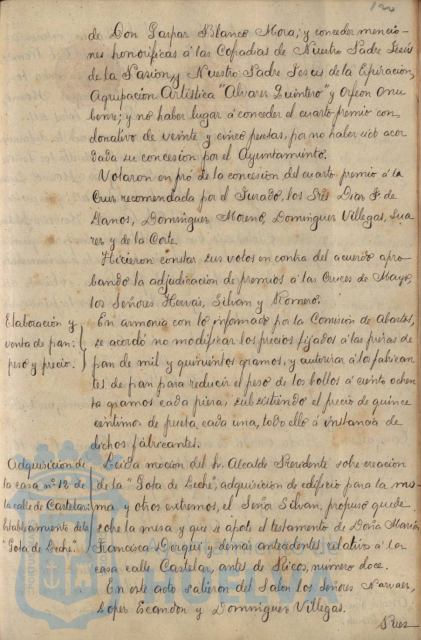 de Don Gaspar Blanco Mora; y conceder mencio-
nes honoríficas á las Cofradías de Nuestro Padre Jesús
de la Pasión, y Nuestro Padre Jesús de la Expiración,
Agrupación Artística "Alvarez Quintero" y Orfeón Onu
bense; y no haber lugar á conceder el cuarto premio con
donativo de veinte y cinco pesetas, por no haber sido acor
dada su concesión por el Ayuntamiento.
Votaron en pró de la concesión del cuarto premio á la
Cruz recomendada por el Jurado, los Sres Díaz F. de
Llanos, Domínguez Moreno, Domínguez Villegas, Sua
rez y de la Corte.
Hicieron constar sus votos en contra del acuerdo apro
bando la adjudicación de premios á las Cruces de Mayo,
los Señores Hervás, Silván y Romero.
Elaboración y
venta de pan:
peso y precio.
En armonía con lo informado por la Comisión de Abastos,
se acordó no modificar los precios fijados á las piezas de
pan de mil y quinientos gramos, y autorizar á los fabrican
tes de pan para reducir el peso de los bollos á ciento ochen
ta gramos cada pieza, subsistiendo el precio de quince
céntimos de peseta, cada una, todo ello á instancia de
dichos fabricantes.
Adquisición de
la casa nº 12 de
la calle de Castelar
Establecimiento de la
"Gota de Leche".
Leída moción del Sr. Alcalde Presidente sobre creación
de la "Gota de Leche", adquisición de edificio para la mis
ma y otros extremos, el Señor Silván, propuso quede
sobre la mesa y que se aporte el testamento de Doña María
Francisca y demás antecedentes, relativo á la
casa calle Castelar, antes de Ricos, número doce.
En este acto salieron del Salón los Señores Narvaez,
López Escandon y Domínguez Villegas.